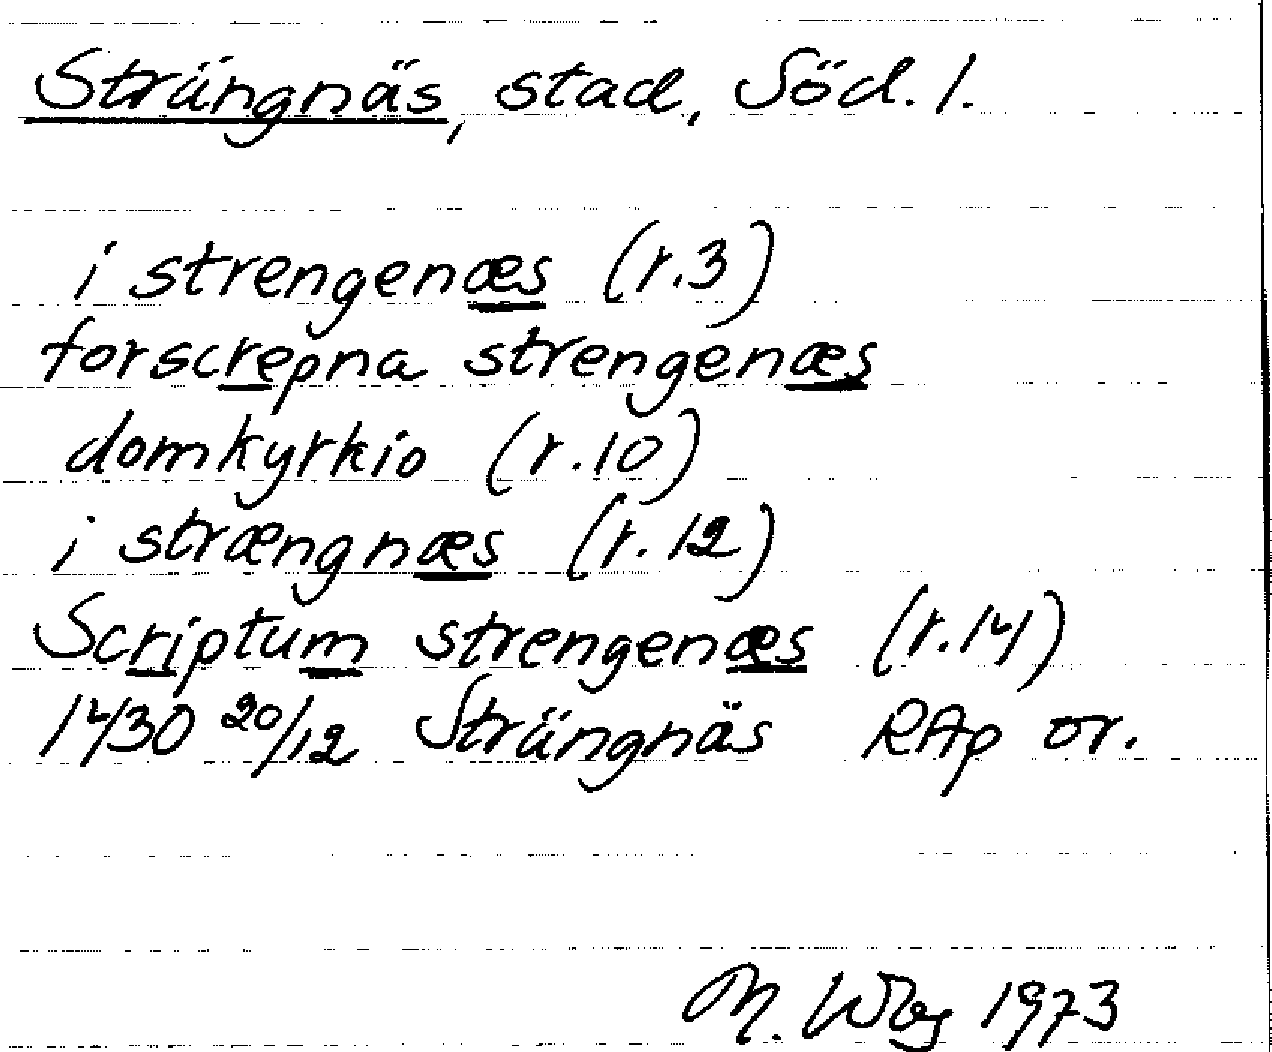 Strängnäs, stad, Söd. l.
i strengenæs (r.3)
forscrepna strengenæs
domkyrkio (r.10)
i strængnæs (r.12)
Scriptum strengenæs (r.14)
1430 20/12 Strängnäs RAp or.
M. Wbg 1973